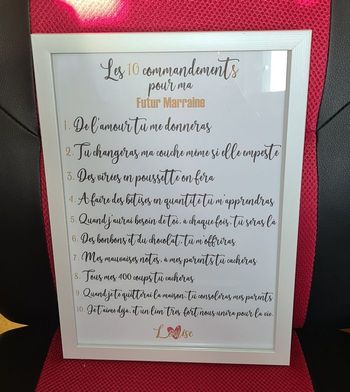 Les 10 commandements
pour ma
Futur Marraine
1. De l'amour tu me donneras
2. Tu changeras ma couche même si elle empeste
3. Des virées en poussette on fera
4. A faire des bêtises en quantité tu m'apprendras
5. Quand j'aurai besoin de toi, à chaque fois, tu seras là
6. Des bonbons et du chocolat, tu m'offriras
7. Mes mauvaises notes, à mes parents tu cacheras
8. Tous mes 400 coups tu cacheras
9. Quand je te quitterai la maison, tu consoleras mes parents
10. Je t'aime déjà, et un lien très fort nous unira pour la vie.
Louise